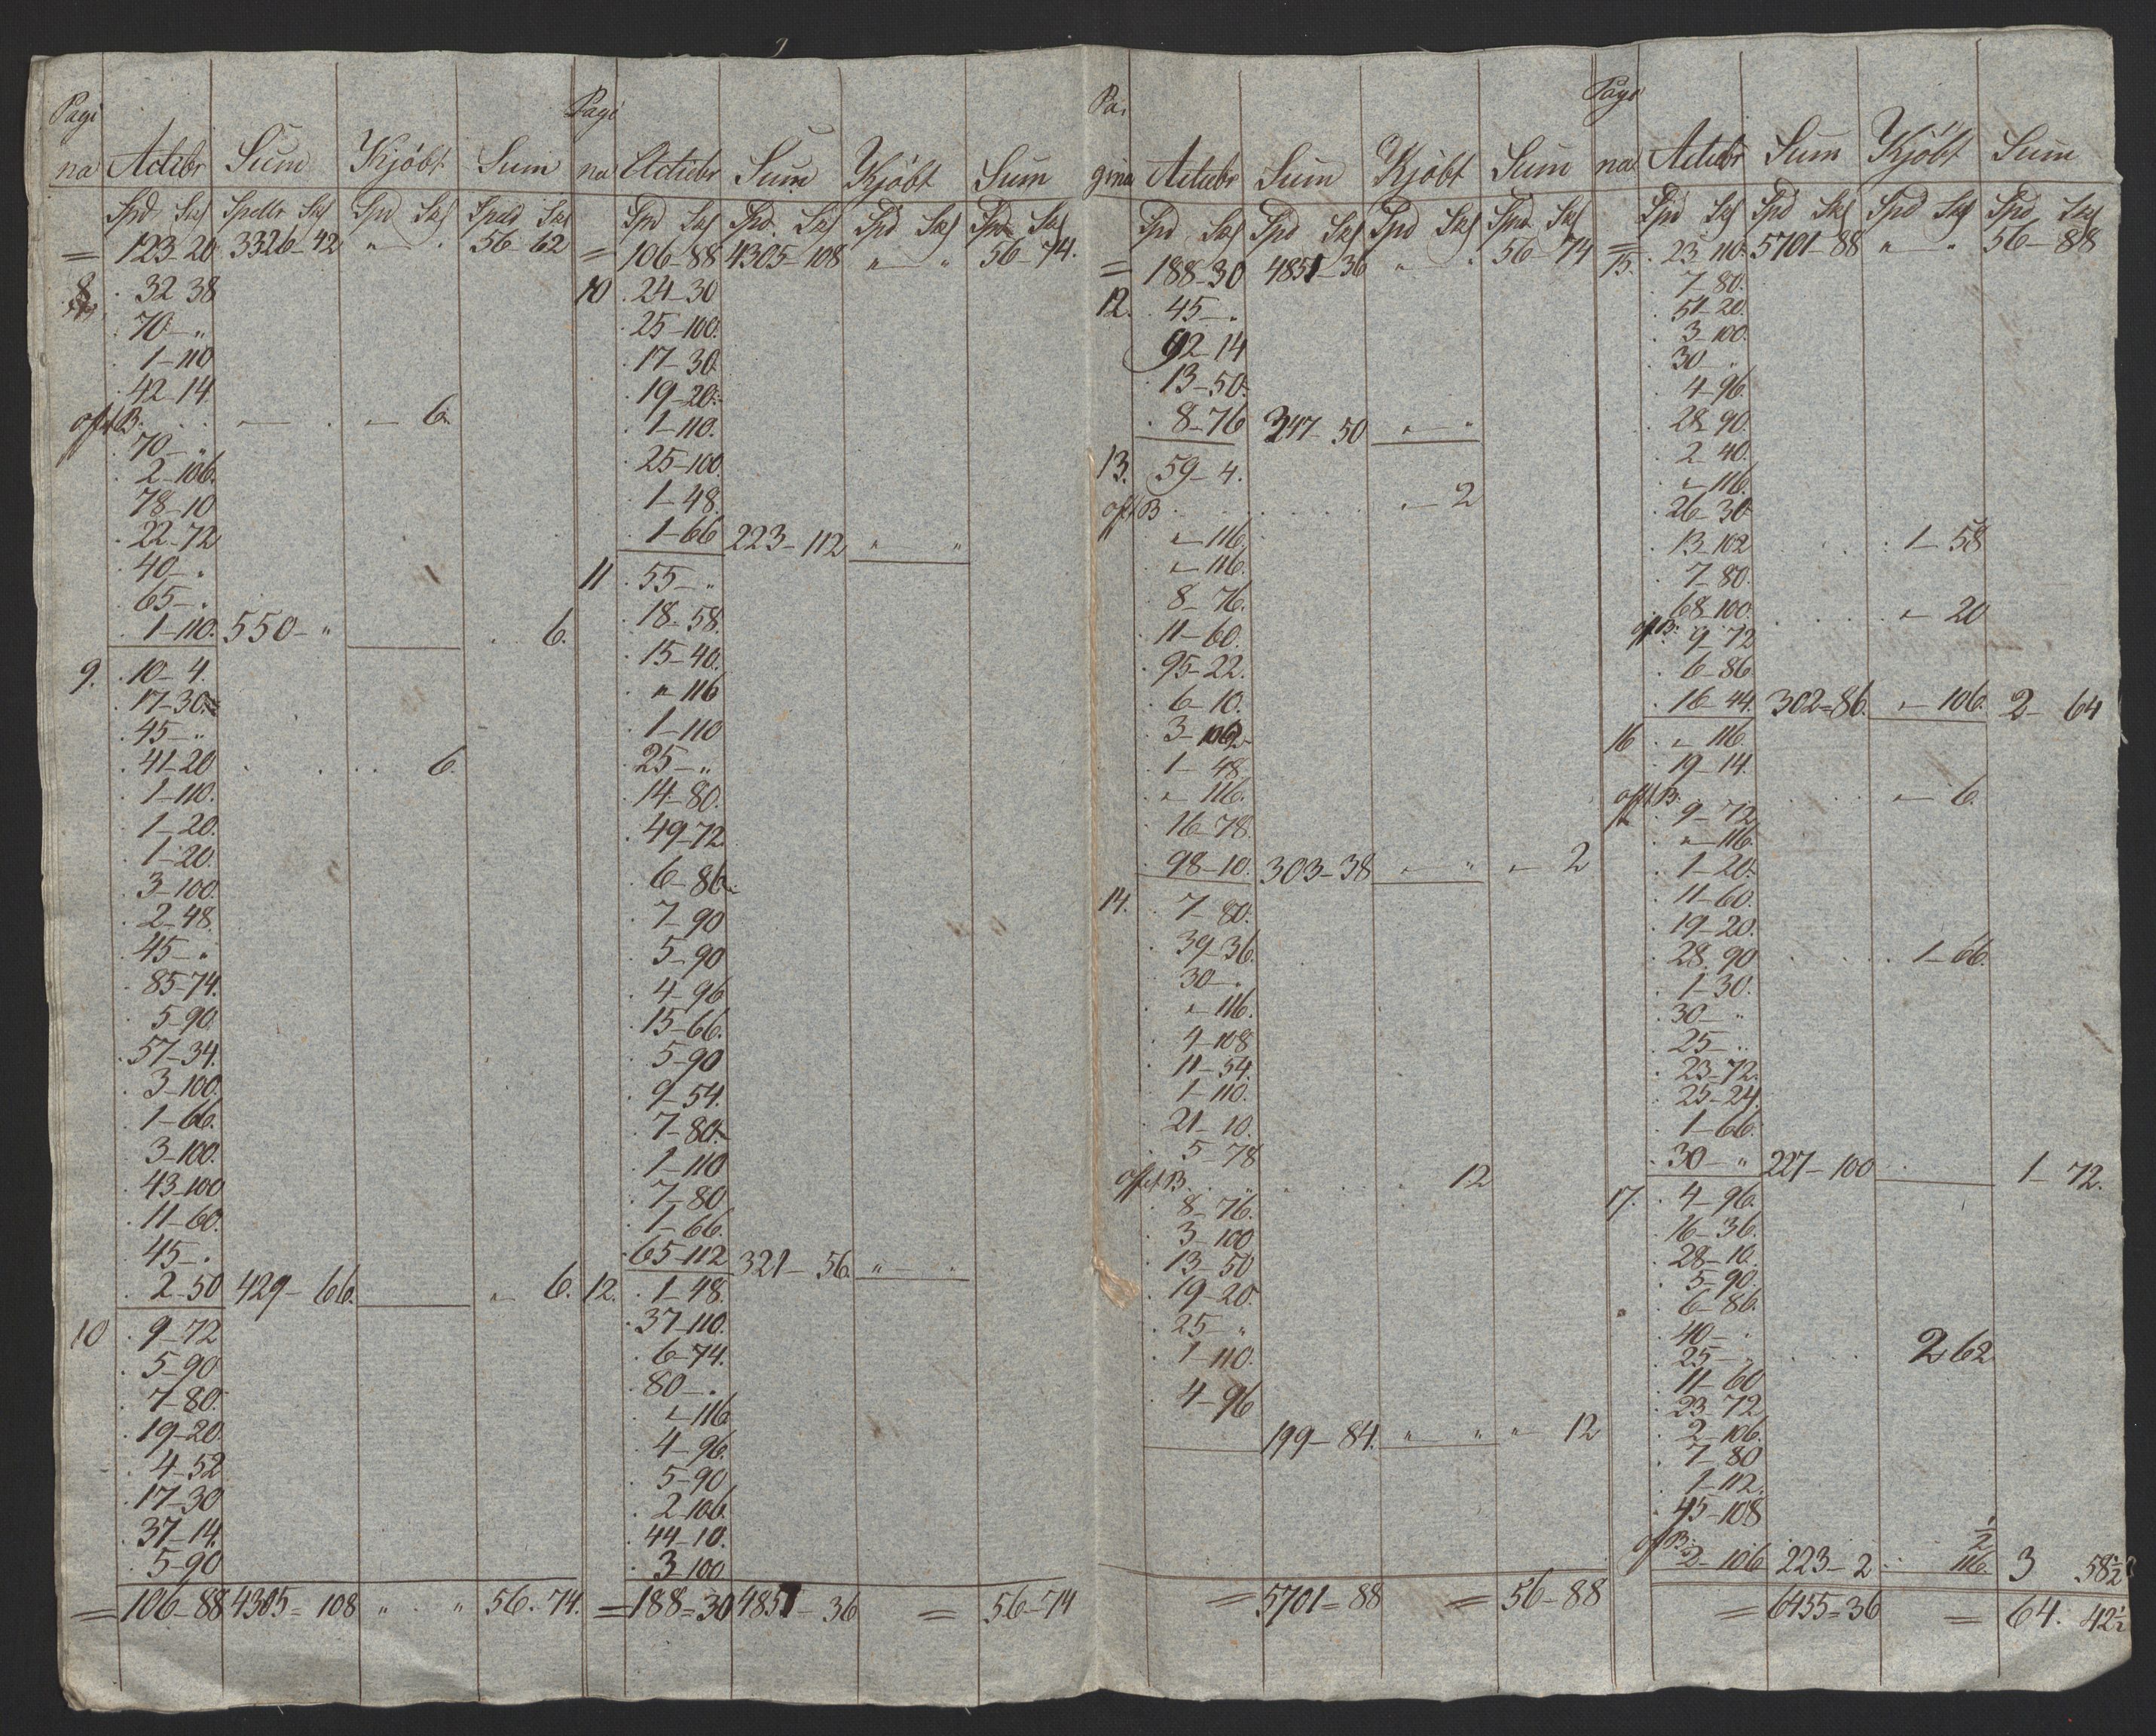 Pagi
na Actiebr Sum Kjöbt Sum
Spd Sk Spdlr Sk Spd Sk Spd Sk
= 123-20 3326-42 " . 56-62
8 32 38
70-"
1-110
42-14
— . — 6.
70-"
2-106.
78-10
22-72
40-"
65-"
1-110. 550-" 6.
9. 10-4.
17-30.
45-"
41-20 . . . 6.
1-110.
1-20.
1-20.
3-100.
2-48.
45-"
85-74.
5-90.
57-34.
3-100.
1-66.
3-100.
43-100
11-60.
45-.
2-50 429-66. " 6.
10 9-72
5-90
7-80.
19-20
4-52
17-30
37-14.
5-90
= 106-88 4305=108 " . " 56.74.
Pagi
na Actiebr Sum Kjöbt Sum
Spd Sk Spd. Sk Spd Sk Spd Sk
= 106-88 4305-108 " " 56-74.
10 24-30
25-100.
17-30.
19-20.
1-110.
25-100.
1-48.
1-66 223-112 " "
11 55-"
18-58.
15-40.
"-116
1-110
25-"
14-80.
49-72
6-86.
7-90
5-90
4-96
15-66.
5-90
9-54.
7-80.
1-110
7-80
1-66.
65-112 321-56. " "
12. 1-48.
37-110.
6-74.
80-.
"-116
4-96.
5-90
2-106.
44-10.
3-100
= 188=30 4851-36 = 56-74
Pa.
gina Actiebr Sum Kjöbt Sum
Spd Sk Spd Sk Spd Sk Spd Sk
= 188-30 4851-36 " . 56-74
12. 45-.
92-14
13-50.
8-76 347-50 " "
13. 59-4.
. . . . "-2
"-116.
"-116.
8-76.
11-60.
95-22.
6-10.
3-102
1-48.
"-116.
16-78.
98-10. 303-38 " " "-2
14. 7-80.
39-36.
30-.
"-116.
4-108
11-54.
1-110.
21-10.
5-78
. . . 12
8-76.
3-100
13-50
19-20.
25-"
1-110.
4-96
199-84. " " " 12
= 5701=88 = 56-88
Pagi
na Actiebr Sum Kjöbt Sum
Spd Sk Spd Sk Spd Sk Spd Sk
= 23-110. 5701-88 " " 56-88
15. 7-80.
51-20.
3-100.
30-"
4-96.
28-90.
2-40.
"-116.
26-30
13-102 . . . 1-58
7-80.
68-100. . . . "-20
9-72
6-86.
16-44. 302=86. "-106. 2-64
16 "-116.
19-14.
. . . "-6.
9-72
"-116.
1-20.
11-60.
19-20.
28-90 . . . 1-66.
1-30.
30-"
25-"
23-72.
25-24.
1-66.
30-" 227-100 1-72.
17. 4-96.
16-36.
28-10.
5-90.
6-86.
40-"
25-" . . . 2 62
11-60
23-72
2-106.
7-80
1-112.
45-108
2-106 223-2 116½ 3 58½
= 6455=36 = 64. 42½